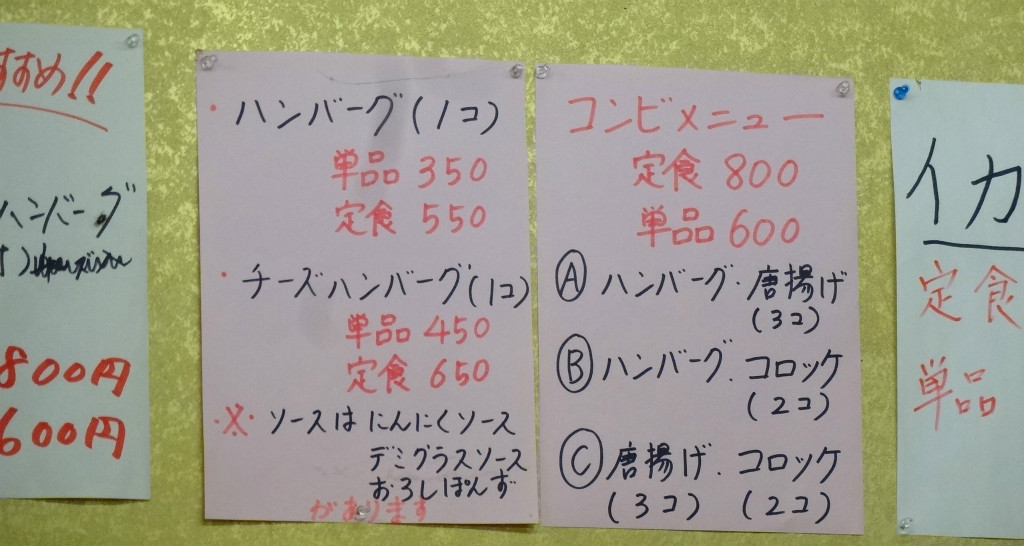 すすめ!!
ハンバーグ
800円
600円
・ハンバーグ(1コ)
単品 350
定食 550
・チーズハンバーグ(1コ)
単品 450
定食 650
※ ソースは にんにくソース
デミグラスソース
おろしぽんず
があります
コンビメニュー
定食 800
単品 600
Ⓐ ハンバーグ・唐揚げ
(3コ)
Ⓑ ハンバーグ・コロッケ
(2コ)
Ⓒ 唐揚げ・コロッケ
(3コ) (2コ)
イカ
定食
単品